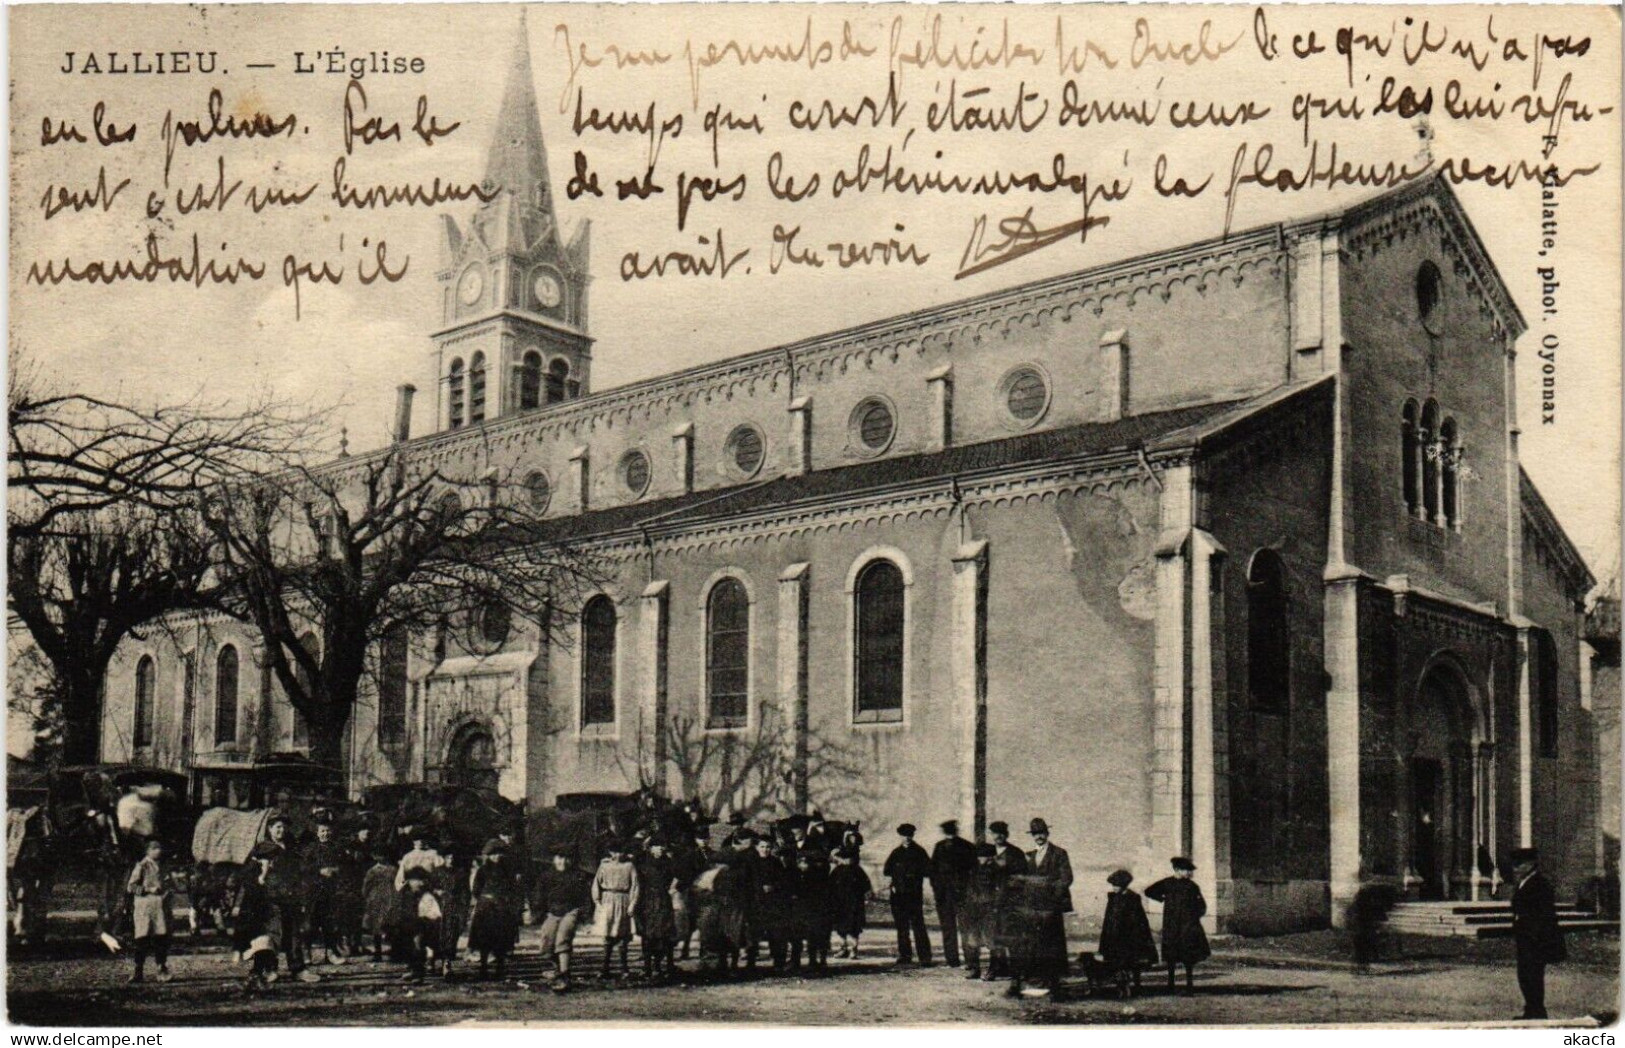 JALLIEU. — L'Église
Je me permets de féliciter ton Oncle de ce qu'il n'a pas
eu les palmes. Par le temps qui court, étant donné ceux qui les lui refu-
sent c'est un honneur de ne pas les obtenir malgré la flatteuse recom-
mandation qu'il avait. Au revoir
F. Vialatte, phot. Oyonnax
akacfa
https://www.delcampe.net